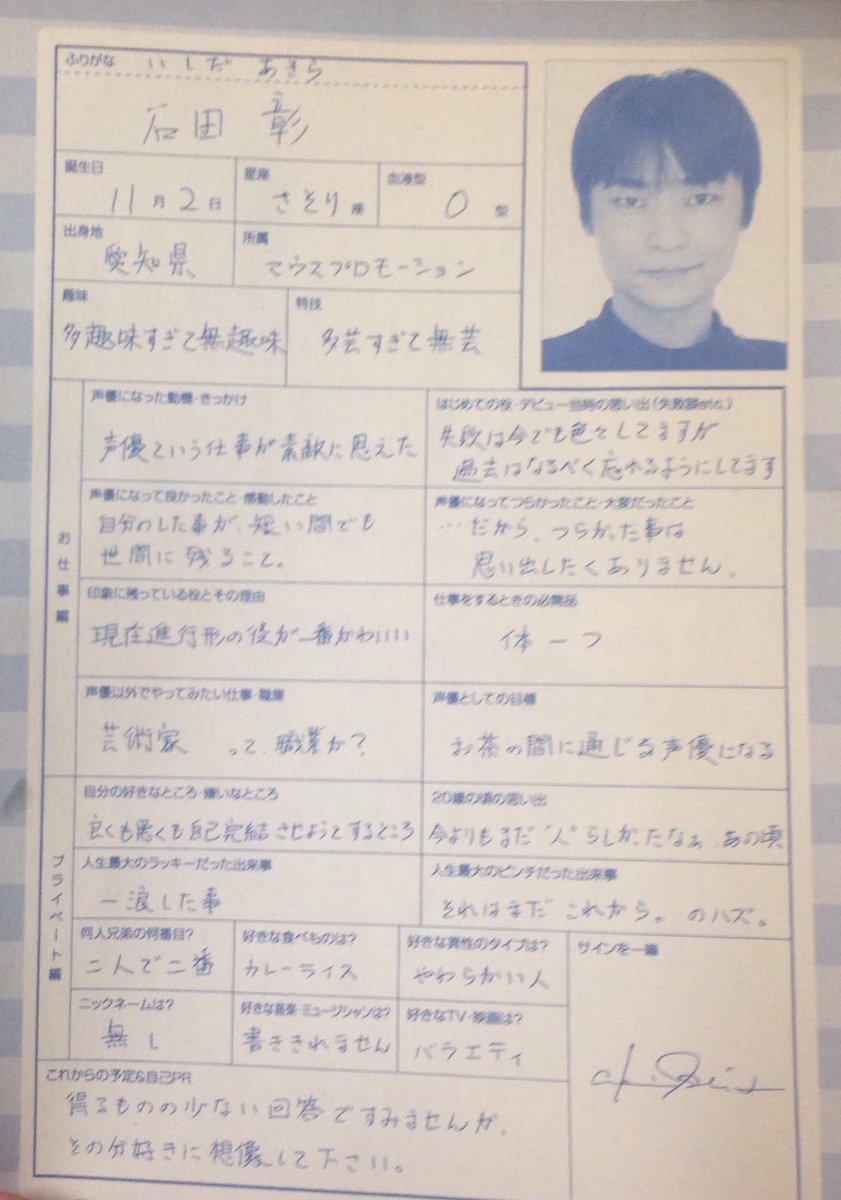 ふりがな いしだ あきら
石田 彰
誕生日 星座 血液型
11月2日 さそり座 O型
出身地 所属
愛知県 マウスプロモーション
趣味 特技
多趣味すぎて無趣味 多芸すぎて無芸
お仕事編
声優になった動機・きっかけ
声優という仕事が素敵に思えた
はじめての役・デビュー当時の思い出(失敗談etc.)
失敗は今でも色々してますが
過去はなるべく忘れるようにしてます
声優になって良かったこと・感動したこと
自分のした事が、短い間でも
世間に残ること。
声優になってつらかったこと・大変だったこと
…だから、つらかった事は
思い出したくありません。
印象に残っている役とその理由
現在進行形の役が一番かわいい
仕事をするときの必需品
体一つ
声優以外でやってみたい仕事・職業
芸術家 って、職業か?
声優としての目標
お茶の間に通じる声優になる
プライベート編
自分の好きなところ・嫌いなところ
良くも悪くも自己完結させようとするところ
20歳の頃の思い出
今よりもまだ"人"らしかったなぁ、あの頃
人生最大のラッキーだった出来事
一浪した事
人生最大のピンチだった出来事
それはまだこれから。のハズ。
何人兄弟の何番目? 好きな食べものは? 好きな異性のタイプは?
二人で二番 カレーライス やわらかい人
ニックネームは? 好きな音楽・ミュージシャンは? 好きなTV・映画は?
無し 書ききれません バラエティ
サインを一筆
これからの予定&自己PR
得るものの少ない回答ですみませんが、
その分好きに想像して下さい。